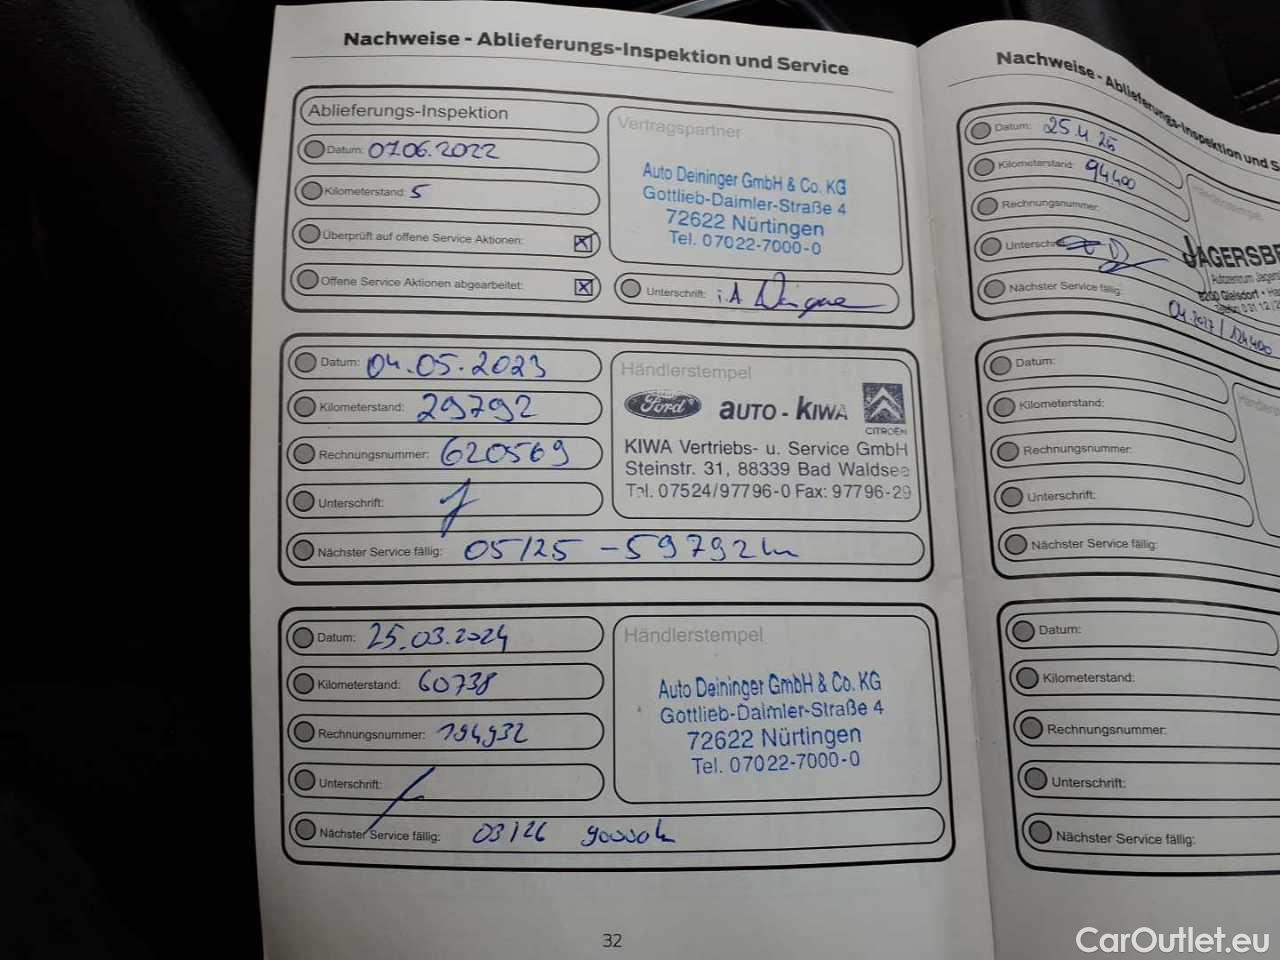 Nachweise - Ablieferungs-Inspektion und Service
Ablieferungs-Inspektion
Datum: 07.06.2022
Kilometerstand: 5
Überprüft auf offene Service Aktionen:
Offene Service Aktionen abgearbeitet:
Vertragspartner
Auto Deininger GmbH & Co. KG
Gottlieb-Daimler-Straße 4
72622 Nürtingen
Tel. 07022-7000-0
Unterschrift: i.A
Datum: 04.05.2023
Kilometerstand: 29792
Rechnungsnummer: 620569
Unterschrift:
Nächster Service fällig: 05/25 - 59792 km
Händlerstempel
Ford AUTO - KIWA
CITROËN
KIWA Vertriebs- u. Service GmbH
Steinstr. 31, 88339 Bad Waldsee
Tel. 07524/97796-0 Fax: 97796-29
Datum: 25.03.2024
Kilometerstand: 60738
Rechnungsnummer: 194932
Unterschrift:
Nächster Service fällig: 03/26 90000k
Händlerstempel
Auto Deininger GmbH & Co. KG
Gottlieb-Daimler-Straße 4
72622 Nürtingen
Tel. 07022-7000-0
32
Nachweise - Ablieferungs-Inspektion und S
Datum: 25.4.25
Kilometerstand: 94.400
Rechnungsnummer:
Unterschrift:
Nächster Service fällig:
04.2027 / 124.400
Händlerstempel
JAGERSBE
8200 Gleisdorf
Datum:
Kilometerstand:
Rechnungsnummer:
Unterschrift:
Nächster Service fällig:
Datum:
Kilometerstand:
Rechnungsnummer:
Unterschrift:
Nächster Service fällig:
CarOutlet.eu